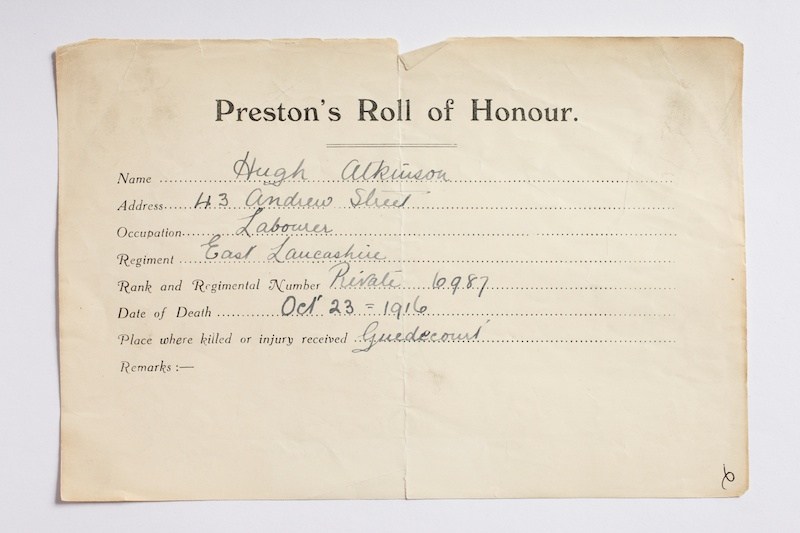 Preston's Roll of Honour.
Name Hugh Atkinson
Address 43 Andrew Street
Occupation Labourer
Regiment East Lancashire
Rank and Regimental Number Private 6987
Date of Death Oct 23 = 1916
Place where killed or injury received Guedecourt
Remarks :—